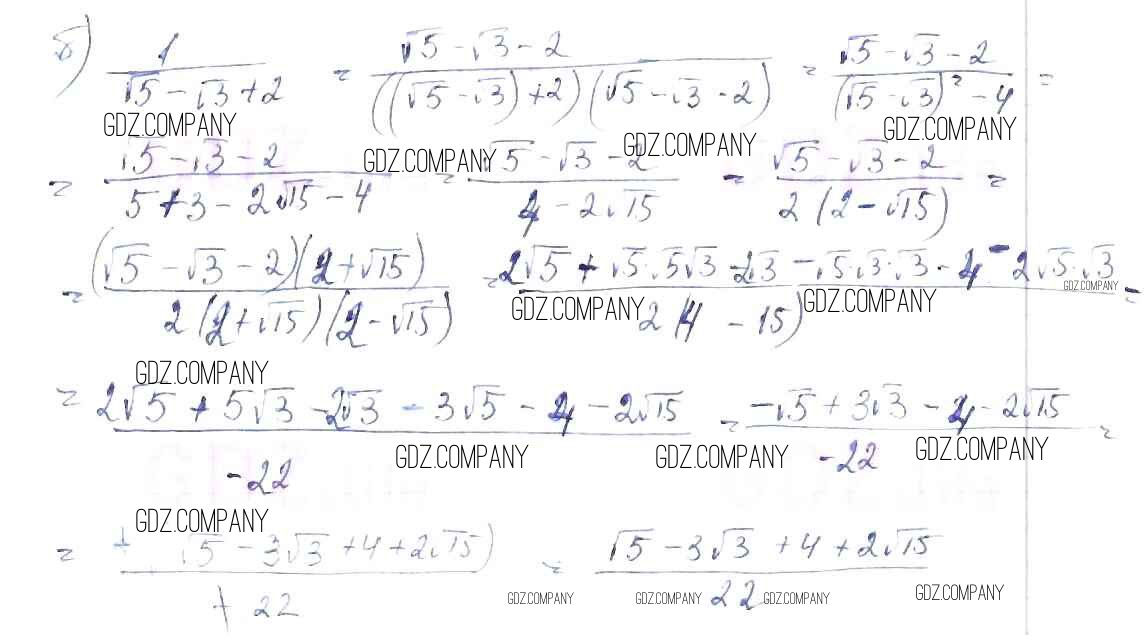 б) 1 / (√5 - √3 + 2) = (√5 - √3 - 2) / (((√5 - √3) + 2)(√5 - √3 - 2)) = (√5 - √3 - 2) / ((√5 - √3)² - 4) =
GDZ.COMPANY GDZ.COMPANY GDZ.COMPANY GDZ.COMPANY
= (√5 - √3 - 2) / (5 + 3 - 2√15 - 4) = (√5 - √3 - 2) / (4 - 2√15) = (√5 - √3 - 2) / (2(2 - √15)) =
= ((√5 - √3 - 2)(2 + √15)) / (2(2 + √15)(2 - √15)) = (2√5 + √5·√5√3 - 2√3 - √5·√3·√3 - 4 - 2√5·√3) / (2(4 - 15)) =
GDZ.COMPANY GDZ.COMPANY GDZ.COMPANY
GDZ.COMPANY
= (2√5 + 5√3 - 2√3 - 3√5 - 4 - 2√15) / (-22) = (-√5 + 3√3 - 4 - 2√15) / (-22) =
GDZ.COMPANY GDZ.COMPANY GDZ.COMPANY
GDZ.COMPANY
= + (√5 - 3√3 + 4 + 2√15) / (+ 22) = (√5 - 3√3 + 4 + 2√15) / 22
GDZ.COMPANY GDZ.COMPANY GDZ.COMPANY GDZ.COMPANY